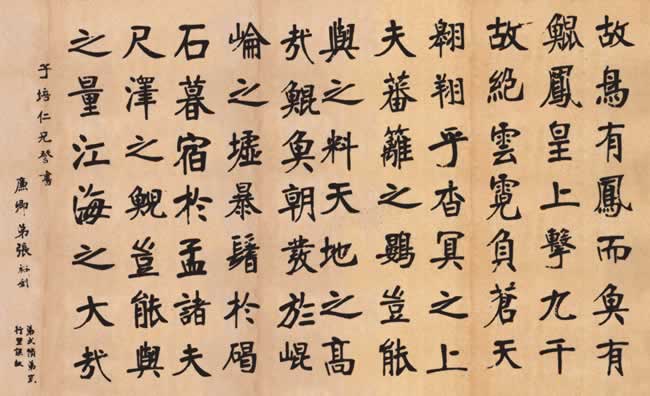 故鳥有鳳而魚有
鯤鳳皇上擊九千
故絕雲霓負蒼天
翱翔乎杳冥之上
夫蕃籬之鷃豈能
與之料天地之高
哉鯤魚朝發於崐
崘之墟暴鬐於碣
石暮宿於孟諸夫
尺澤之鯢豈能與
之量江海之大哉
子培仁兄詧書
廉卿弟張裕釗